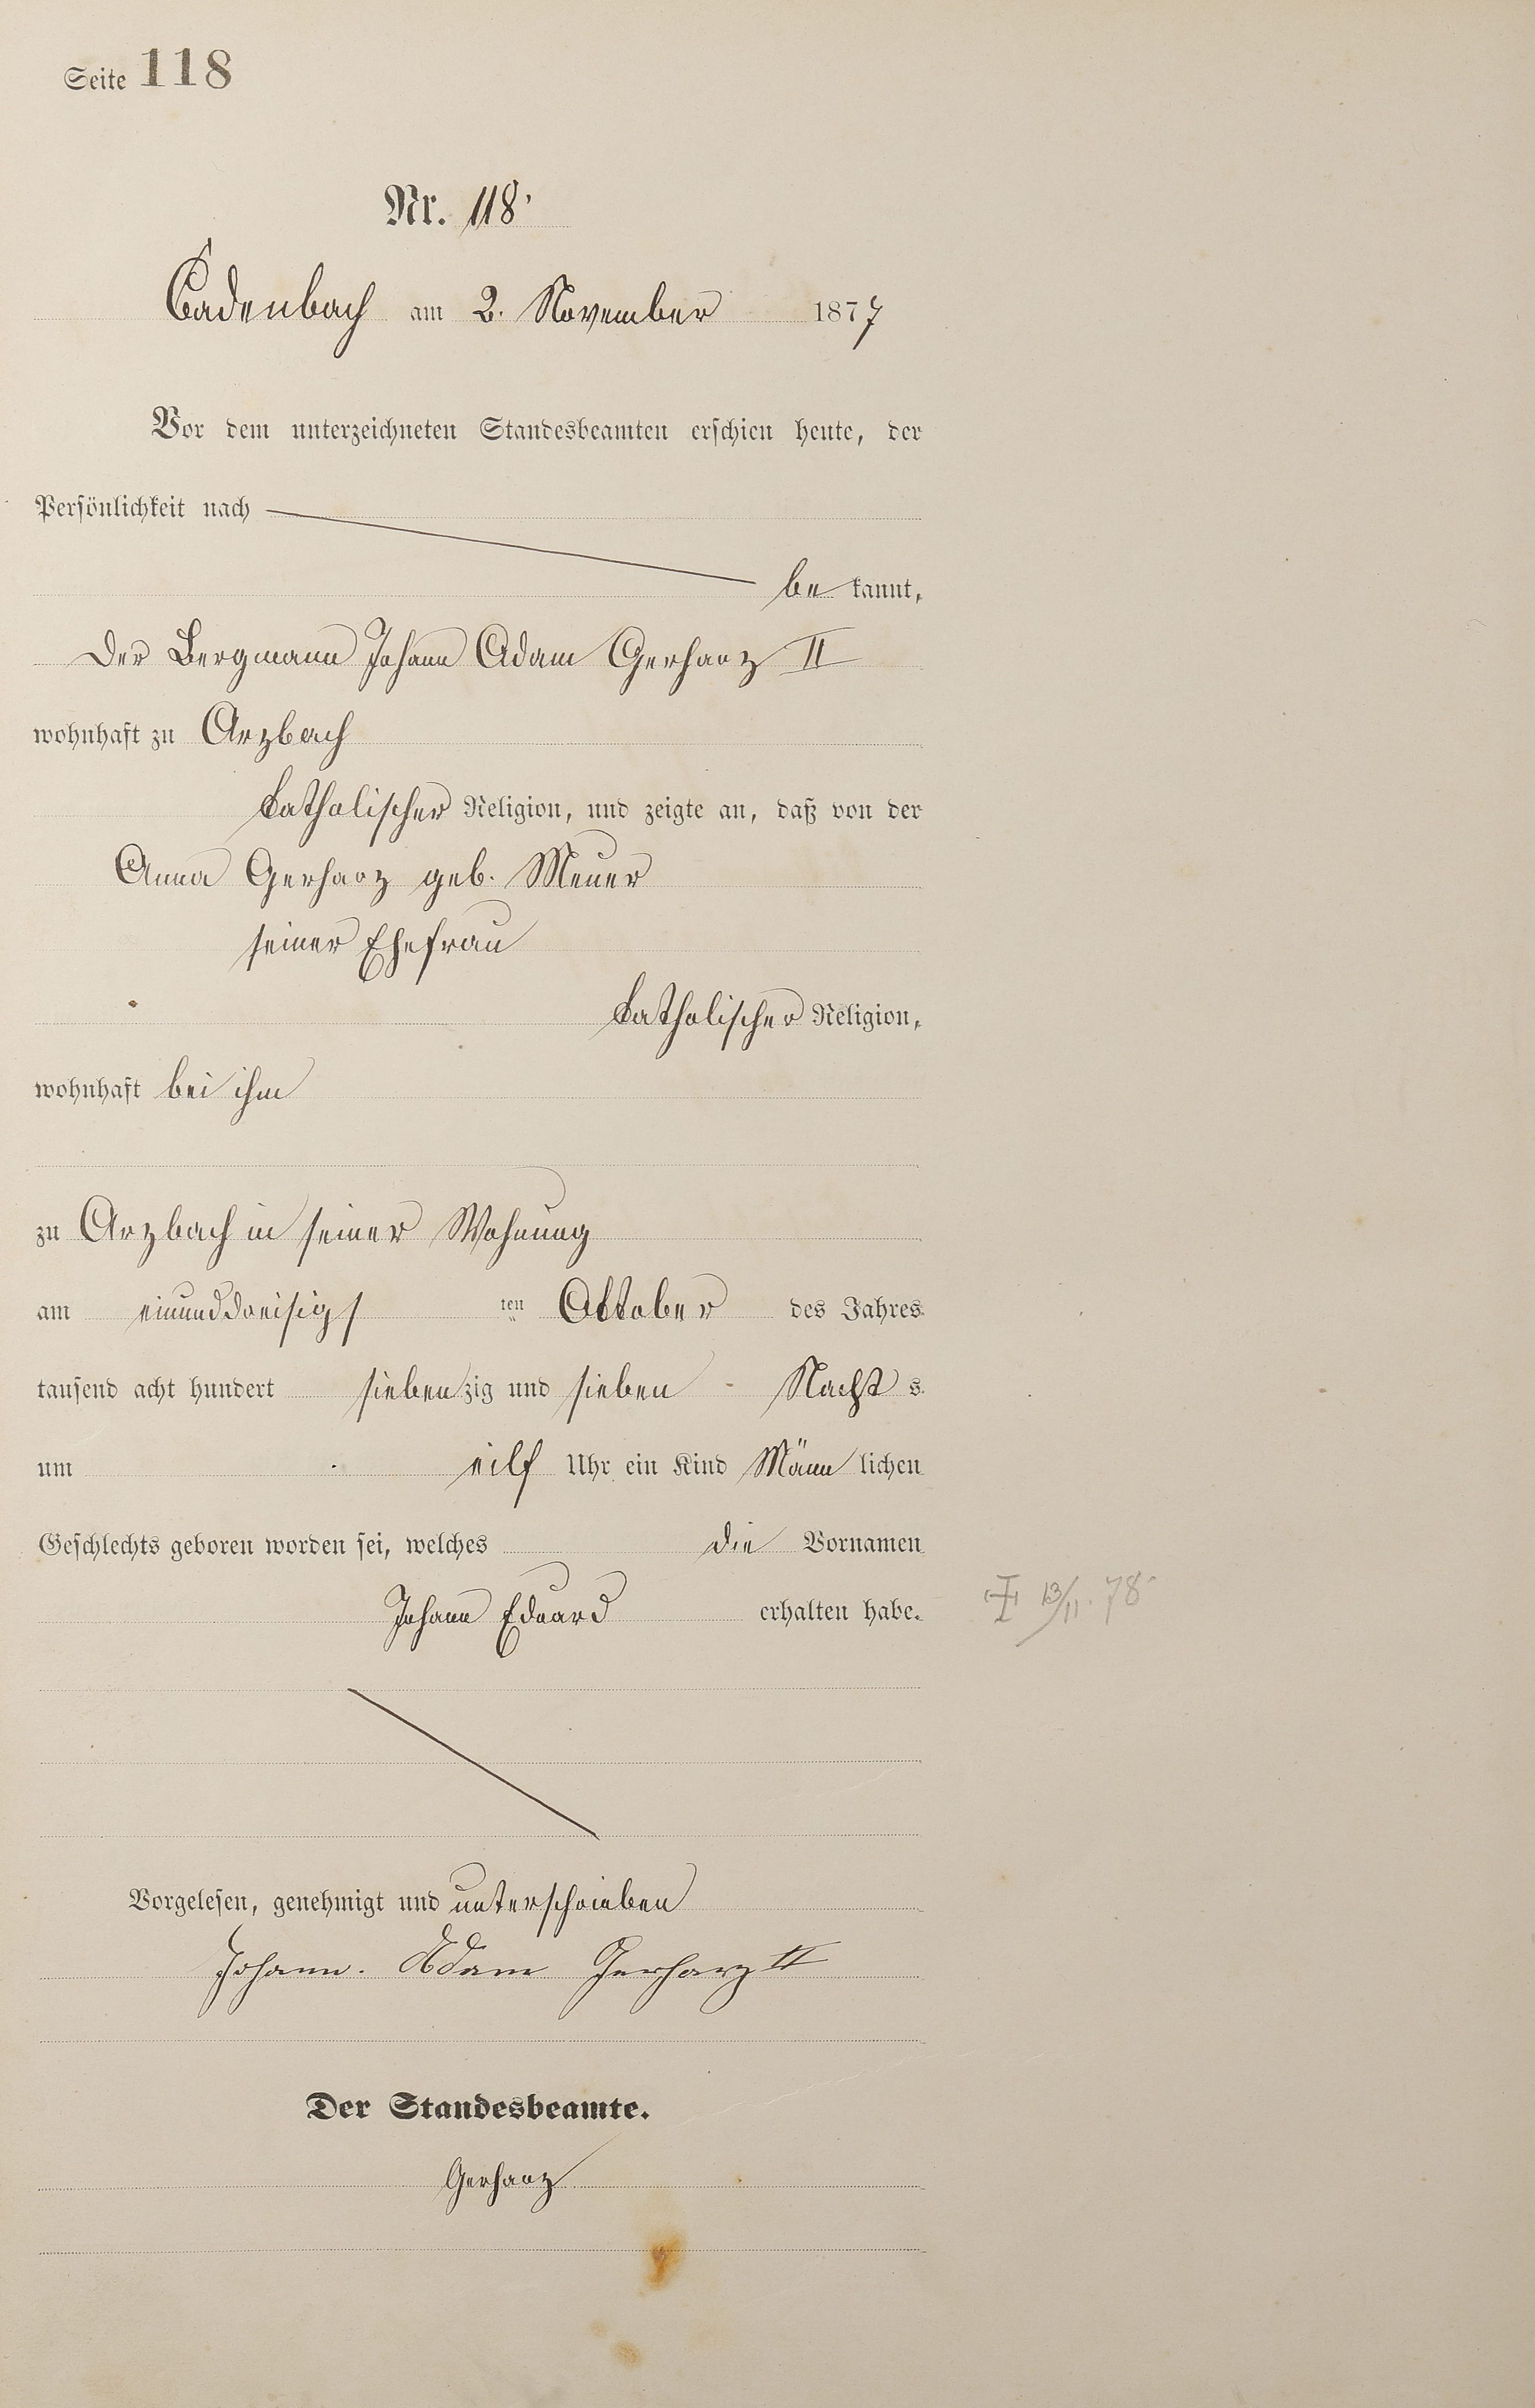 Seite 118
Nr. 118
Cadenbach am 2. November 1877
Vor dem unterzeichneten Standesbeamten erschien heute, der
Persönlichkeit nach
be kannt,
Der Bergmann Johann Adam Gerharz II
wohnhaft zu Arzbach
katholischer Religion, und zeigte an, daß von der
Anna Gerharz geb. Meuer
seiner Ehefrau
katholischer Religion,
wohnhaft bei ihm
zu Arzbach in seiner Wohnung
am einunddreisigs ten Oktober des Jahres
tausend acht hundert siebenzig und sieben Nacht s
um eilf Uhr ein Kind Männ lichen
Geschlechts geboren worden sei, welches die Vornamen
Johann Eduard erhalten habe.
† 13/11. 78
Vorgelesen, genehmigt und unterschrieben
Johann. Adam Gerharz II
Der Standesbeamte.
Gerharz